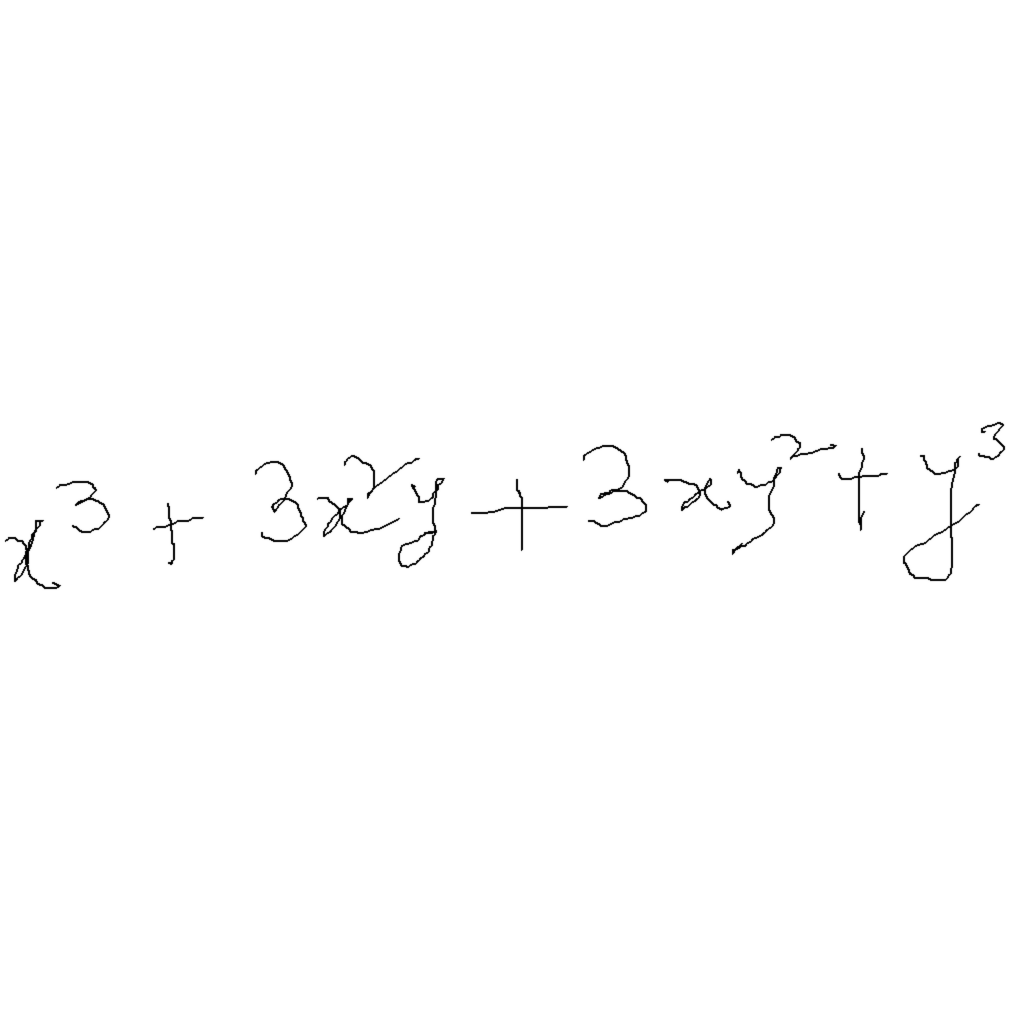 x³ + 3x²y + 3xy² + y³